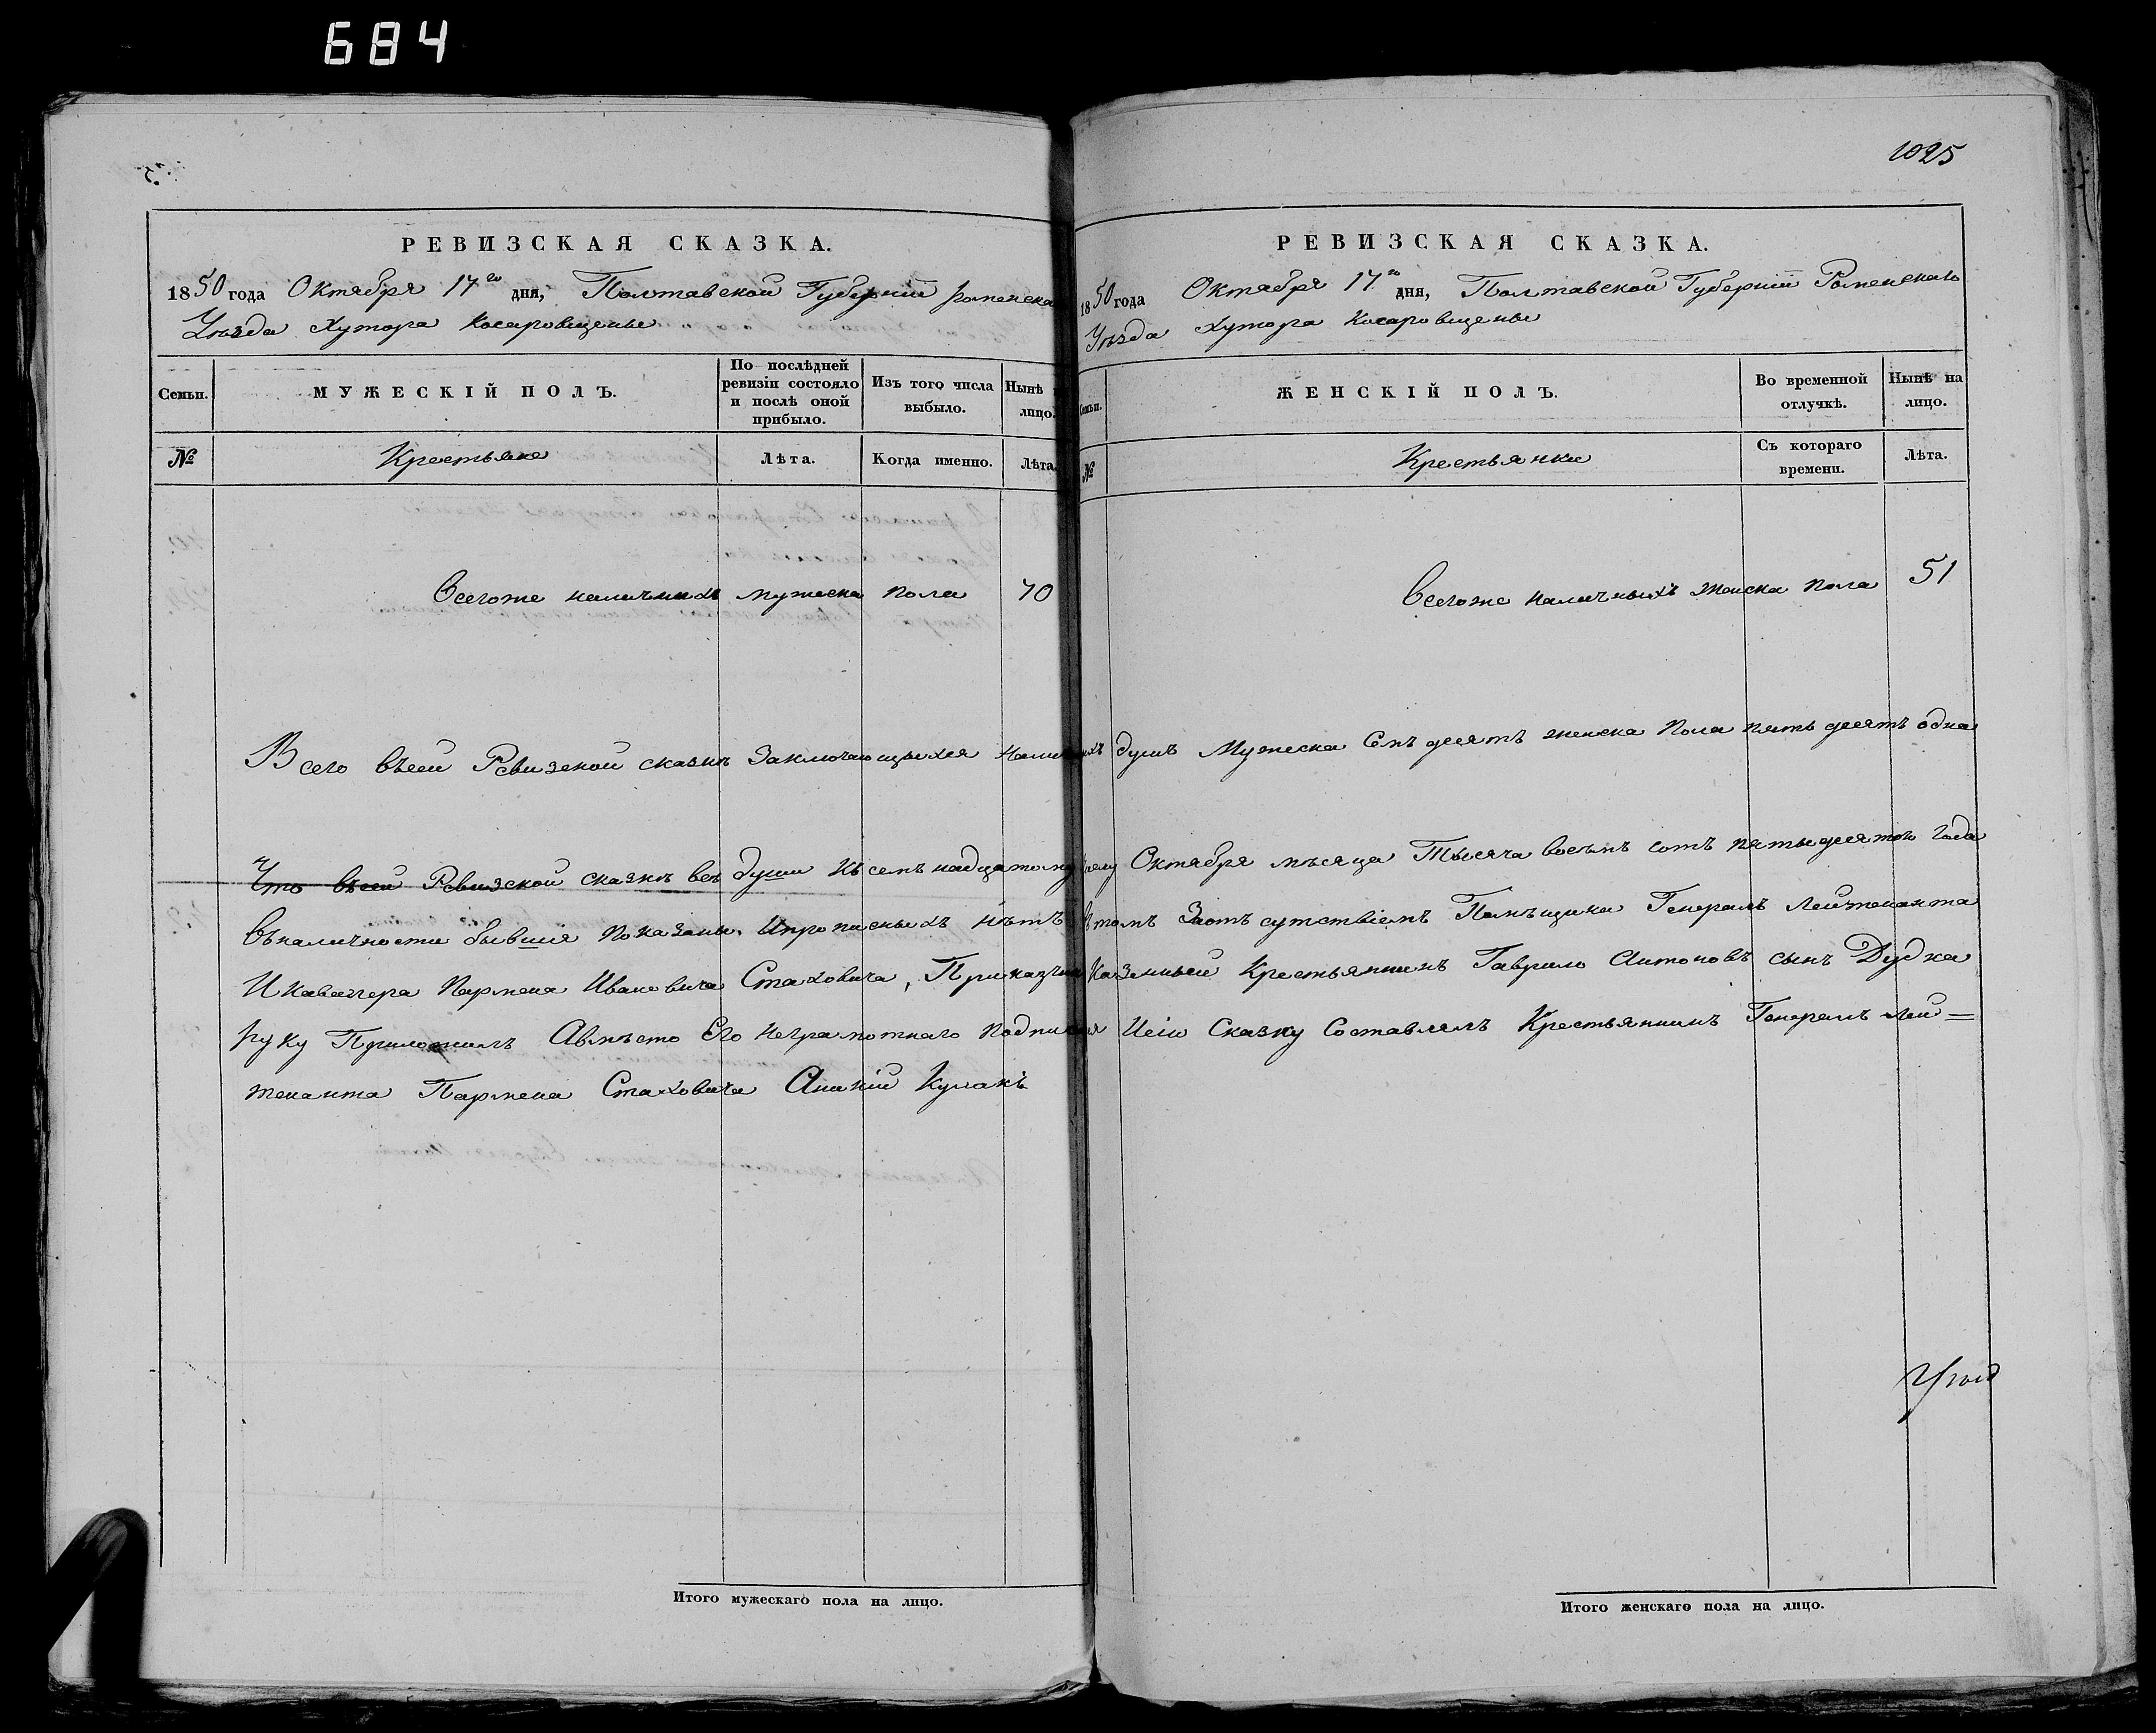 684
1025
РЕВИЗСКАЯ СКАЗКА.
1850 года Октября 17го дня, Полтавской Губерніи Роменска
Уѣзда Хутора Косаровщены
Семьи. МУЖЕСКІЙ ПОЛЪ. По послѣдней ревизіи состояло и послѣ оной прибыло. Изъ того числа выбыло. Нынѣ лицо.
№ Крестьяне Лѣта. Когда именно. Лѣта.
Всегоже наличныхъ мужеска пола 70
РЕВИЗСКАЯ СКАЗКА.
1850 года Октября 17го дня, Полтавской Губерніи Роменскаго
Уѣзда Хутора Косаровщены
Семьи. ЖЕНСКІЙ ПОЛЪ. Во временной отлучкѣ. Нынѣ на лицо.
№ Крестьянки Съ котораго времени. Лѣта.
Всегоже наличныхъ женска пола 51
Всего въсей Ревизской сказкѣ Заключающихся Наличныхъ душъ Мужеска Семъ десятъ женска Пола пять десятъ одна
Что въсей Ревизской сказкѣ все души Къ семъ надцатому Октября мѣсяца Тысяча восѣмъ сотъ пятьдесятого Года
Въналичности бывшие Показаны. Ипрописныхъ нѣтъ Втомъ Заотъсутствіемъ Помѣщика Генералъ Лейтенанта
Икавалера Пармена Ивановича Стаховича, Приказчик Казенный Крестьянинъ Гаврило Антоновъ сынъ Дудка
руку Приложилъ Авмѣсто Его Неграмотнаго Подписался Исію Сказку Составлялъ Крестьянинъ Генералъ Лей=
тенанта Пармена Стаховича Ананій Кулакъ
Итого мужескаго пола на лицо.
Итого женскаго пола на лицо.